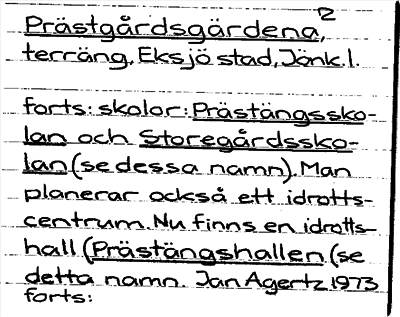 Prästgårdsgärdena, 2
terräng, Eksjö stad, Jönk. l.
forts: skolor: Prästängssko-
lan och Storegårdssko-
lan (se dessa namn). Man
planerar också ett idrotts-
centrum. Nu finns en idrotts-
hall (Prästängshallen (se
detta namn. Jan Agertz 1973
forts: